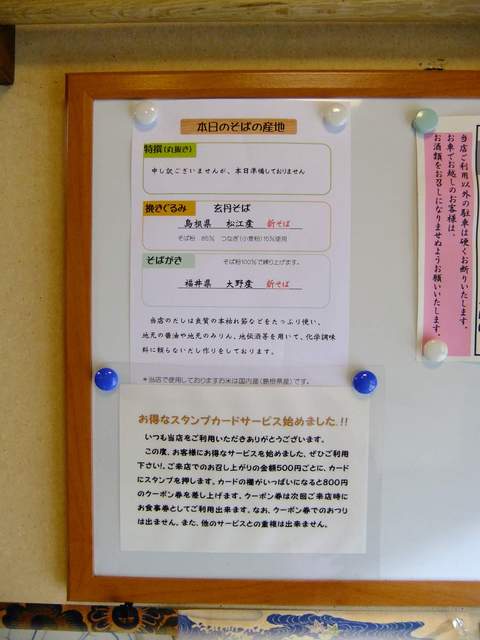 本日のそばの産地
特撰(丸抜き)
申し訳ございませんが、本日準備しておりません
挽きぐるみ 玄丹そば
島根県 松江産 新そば
そば粉 85% つなぎ(小麦粉)15%使用
そばがき そば粉100%で練り上げます。
福井県 大野産 新そば
当店のだしは良質の本枯れ節などをたっぷり使い、
地元の醤油や地元のみりん、地伝酒等を用いて、化学調味
料に頼らないだし作りをしております。
*当店で使用しておりますお米は国内産(島根県産)です。
お得なスタンプカードサービス始めました!!
いつも当店をご利用いただきありがとうございます。
この度、お客様にお得なサービスを始めました、ぜひご利用
下さい!、ご来店でのお召し上がりの金額500円ごとに、カード
にスタンプを押します。カードの欄がいっぱいになると800円
のクーポン券を差し上げます。クーポン券は次回ご来店時に
お食事券としてご利用出来ます。なお、クーポン券でのおつり
は出ません。また、他のサービスとの重複は出来ません。
当店ご利用以外の駐車は硬くお断りいたします。
お車でお越しのお客様は、
お酒類をお召しになりませぬようお願いいたします。